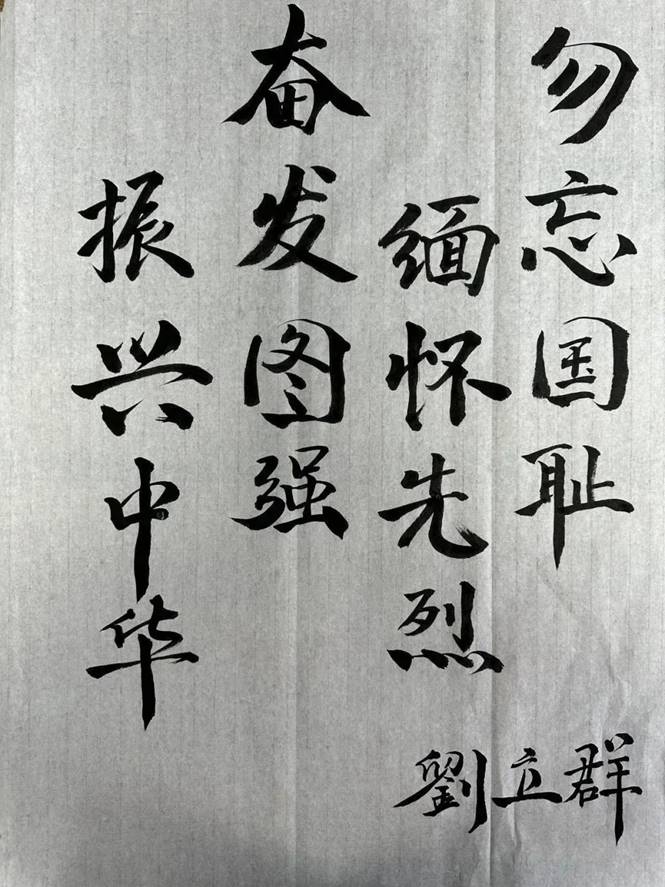 勿忘国耻
缅怀先烈
奋发图强
振兴中华
劉立群